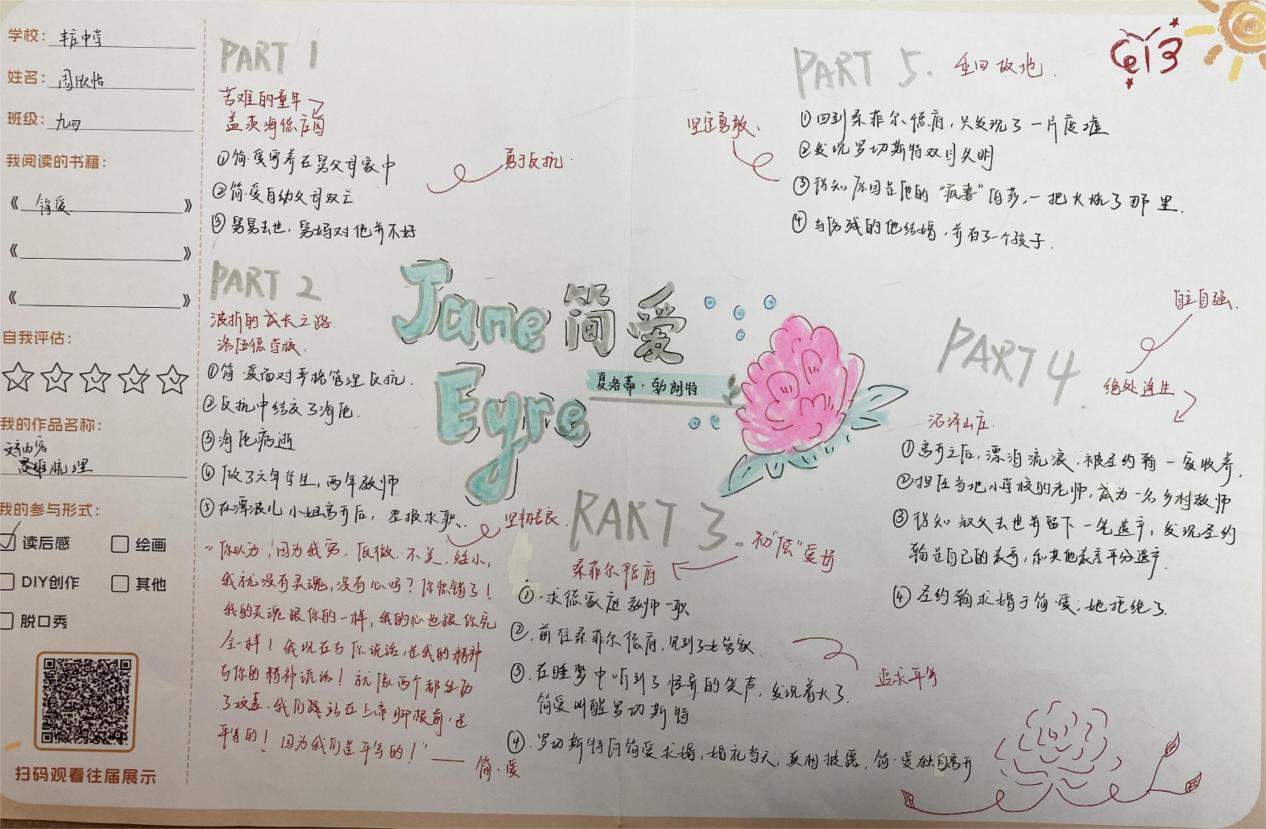 学校：丰庄中学
姓名：周欣怡
班级：九四
我阅读的书籍：
《 简爱 》
《 》
《 》
自我评估：
我的作品名称：
思维梳理
我的参与形式：
读后感 绘画
DIY创作 其他
脱口秀
扫码观看往届展示
PART 1
苦难的童年
盖茨海德庄园
①简·爱寄养在舅父母家中
②简·爱自幼父母双亡
③舅舅去世，舅妈对他并不好
勇于反抗
PART 2
波折的成长之路
洛伍德学校
①简·爱面对严格管理反抗.
②反抗中结交了海伦.
③海伦病逝
④做了六年学生，两年教师
⑤在谭波儿小姐离开后，登报求职.
坚韧善良.
"你以为，因为我穷、低微、不美、矮小，
我就没有灵魂，没有心吗？你想错了！
我的灵魂跟你的一样，我的心也跟你完
全一样！我现在与你说话，是我的精神
与你的精神说话！就像两个都经历
了坟墓，我们站在上帝脚跟前，是
平等的！因为我们是平等的！"——
简·爱
Jane 简爱
Eyre
夏洛蒂·勃朗特
PART 3.
桑菲尔德府
①.求得家庭教师一职
②.前往桑菲尔德府，见到了女管家
③.在睡梦中听到了怪异的笑声，发现着火了.
简爱叫醒罗切斯特
④.罗切斯特向简爱求婚，婚礼当天，真相披露，简·爱独自离开
追求平等
PART 4.
自立自强.
绝处逢生
沼泽山庄.
①离开之后，漂泊流浪.被圣约翰一家收养.
②担任当地小学校的老师，成为一名乡村教师
③得知叔父去世并留下一笔遗产，发现圣约
翰是自己的表哥，和其他表亲平分遗产.
④圣约翰求婚于简·爱：她拒绝了.
PART 5.
重回故地.
坚定勇敢、
①回到桑菲尔德府，只发现了一片废墟
②发现罗切斯特双目失明
③得知原因是他的“疯妻”自焚，一把火烧了那里.
④与伤残的他结婚，并有了一个孩子.